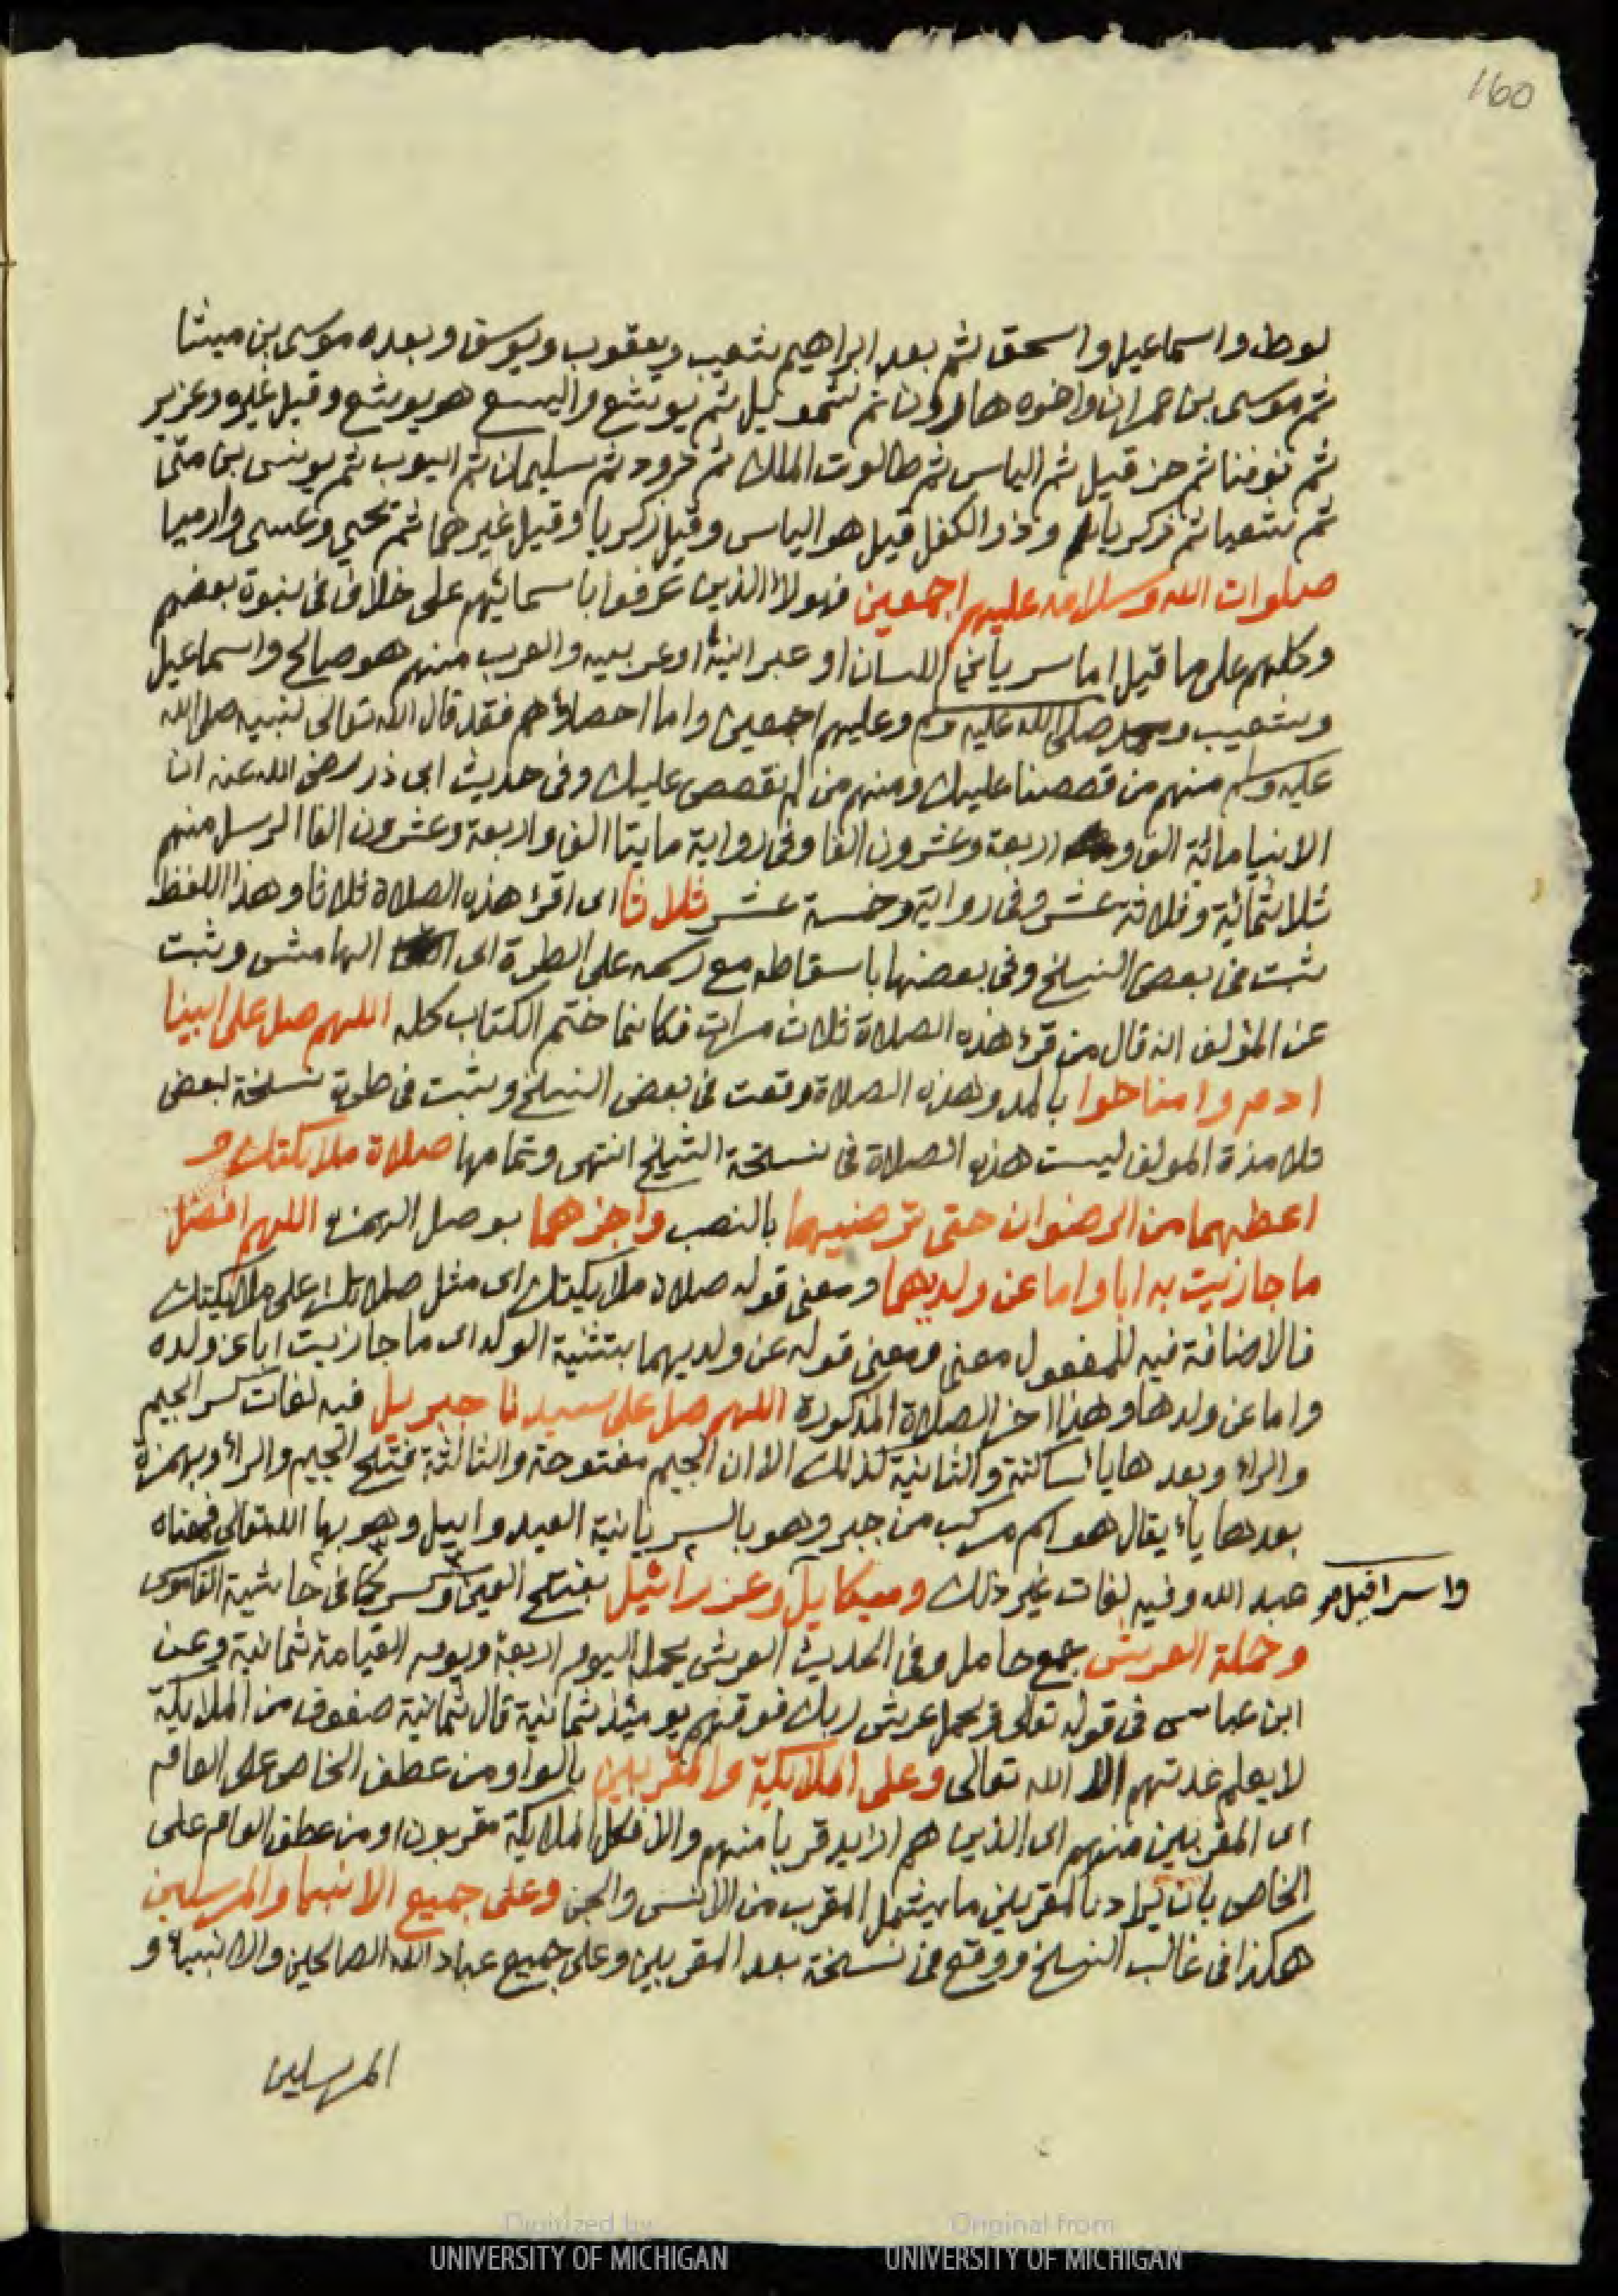 160
لوط واسماعيل واسحق ثم بعد ابراهيم شعيب ويعقوب ويوسق وبعده موسى بن ميشا
ثم موسى بن عمران واخوه هارون ثم شمويل ثم يوشع واليسع هو يوشع وقيل غيره وعزير
ثم نوفنا ثم حزقيل ثم الياس ثم طالوت الملك ثم داود ثم سليمان ثم ايوب ثم يونس بن متى
ثم شعيا ثم زكريا وذو الكفل قيل هو الياس وقيل زكريا وقيل غيرهما ثم يحيى وعيسى وارميا
صلوات الله وسلامه عليهم اجمعين فهولا الذين عرفوا باسمائهم على خلاف فى نبوة بعضهم
وكلهم على ما قيل اما سرياني اللسان او عبرانية او عربيه والعرب منهم هو صالح واسماعيل
وشعيب ومحمد صلى الله عليه وسلم وعليهم اجمعين واما احصاؤهم فقد قال الله تعالى لنبيه صلى الله
عليه وسلم منهم من قصصنا عليك ومنهم من لم نقصص عليك وفى حديث ابى ذر رضى الله عنه ان
الانبيا مائة الف و اربعة وعشرون الفا وفى رواية مايتا الف واربعة وعشرون الفا الرسل منهم
ثلاثمائية وثلاثة عشر وفى رواية وخمسة عشر ثلاثا اى اقرا هذه الصلاة ثلاثا وهذا اللفظ
ثبت فى بعض النسخ وفى بعضها باسقاطه مع رسمه على الطرة اى الهامش وثبت
عن المؤلف انه قال من قرا هذه الصلاة ثلاث مرات فكانما ختم الكتاب كله اللهم صل على ابينا
ادم وامنا حوا بالمد وهذه الصلاة وقعت فى بعض النسخ وثبت فى طرة نسخة لبعض
تلامذة المولف ليست هذه الصلاة فى نسخة الشيخ انتهى وتمامها صلاة ملايكتك و
اعطهما من الرضوان حتى ترضيهما بالنصب واجزهما بوصل الهمزه اللهم افضل
ما جازيت به ابا واما عن ولديهما ومعنى قوله صلاة ملايكتك اى مثل صلاتك على ملايكتك
فالاضافة فيه للمفعول معنى ومعنى قوله عن ولديهما بتثنية الولد اى ما جازيت ابا عن ولده
واما عن ولدها وهذا اخر الصلاة المذكورة اللهم صل على سيدنا جبريل فيه لغات كسر الجيم
والراء وبعدها يا ساكنة والثانية كذالك الا ان الجيم مفتوحة والثالثة فتح الجيم والراء وبهمزة
بعدها ياء يقال هو اسم مركب من جبر وهو بالسريانية العبد وايل وهو بها الله تعالى فمعناه
عبد الله وفيه لغات غير ذلك وميكايل وعزرائيل بفتح العين وكسر كما فى حاشية القاموس
واسرافيل
وحملة العرش جمع حامل وفى الحديث العرش يحمله اليوم اربعة ويوم القيامة ثمانية وعن
ابن عباس فى قوله تعالى ويحمل عرش ربك فوقهم يومئذ ثمانية قال ثمانية صفوف من الملايكة
لا يعلم عدتهم الا الله تعالى وعلى الملايكة والمقربين بالواو من عطف الخاص على العام
اى المقربين منهم اى الذين هم ازيد قربا منهم والا فكل الملايكة مقربون او من عطف العام على
الخاص بان يراد بالمقربين ما يشمل المقرب من الانس والجن وعلى جميع الانبيا والمرسلين
هكذا فى غالب النسخ ووقع فى نسخة بعد المقربين وعلى جميع عباد الله الصالحين والانبياء و
المرسلين
Digitized by
UNIVERSITY OF MICHIGAN
Original from
UNIVERSITY OF MICHIGAN